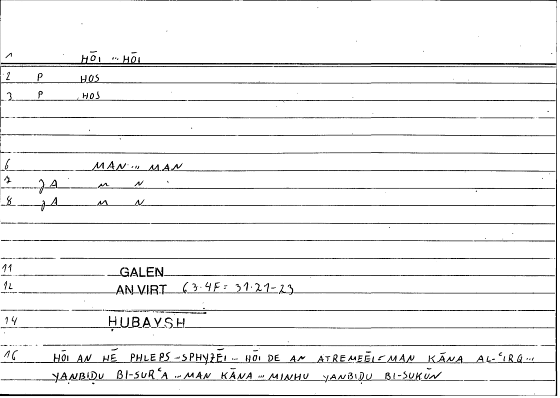 1 HŌI ... HŌI
2 P HOS
3 P HOS
6 MAN ... MAN
7 JA M N
8 JA M N
11 GALEN
12 AN VIRT 63.4F = 31.21-23
14 ḤUBAYSH
16 HŌI AN HĒ PHLEPS SPHYZĒI ... HŌI DE AN ATREMEĒI = MAN KĀNA AL-ʿIRQ ...
YANBIḌU BI-SURʿA ... MAN KĀNA ... MINHU YANBIḌU BI-SUKŪN